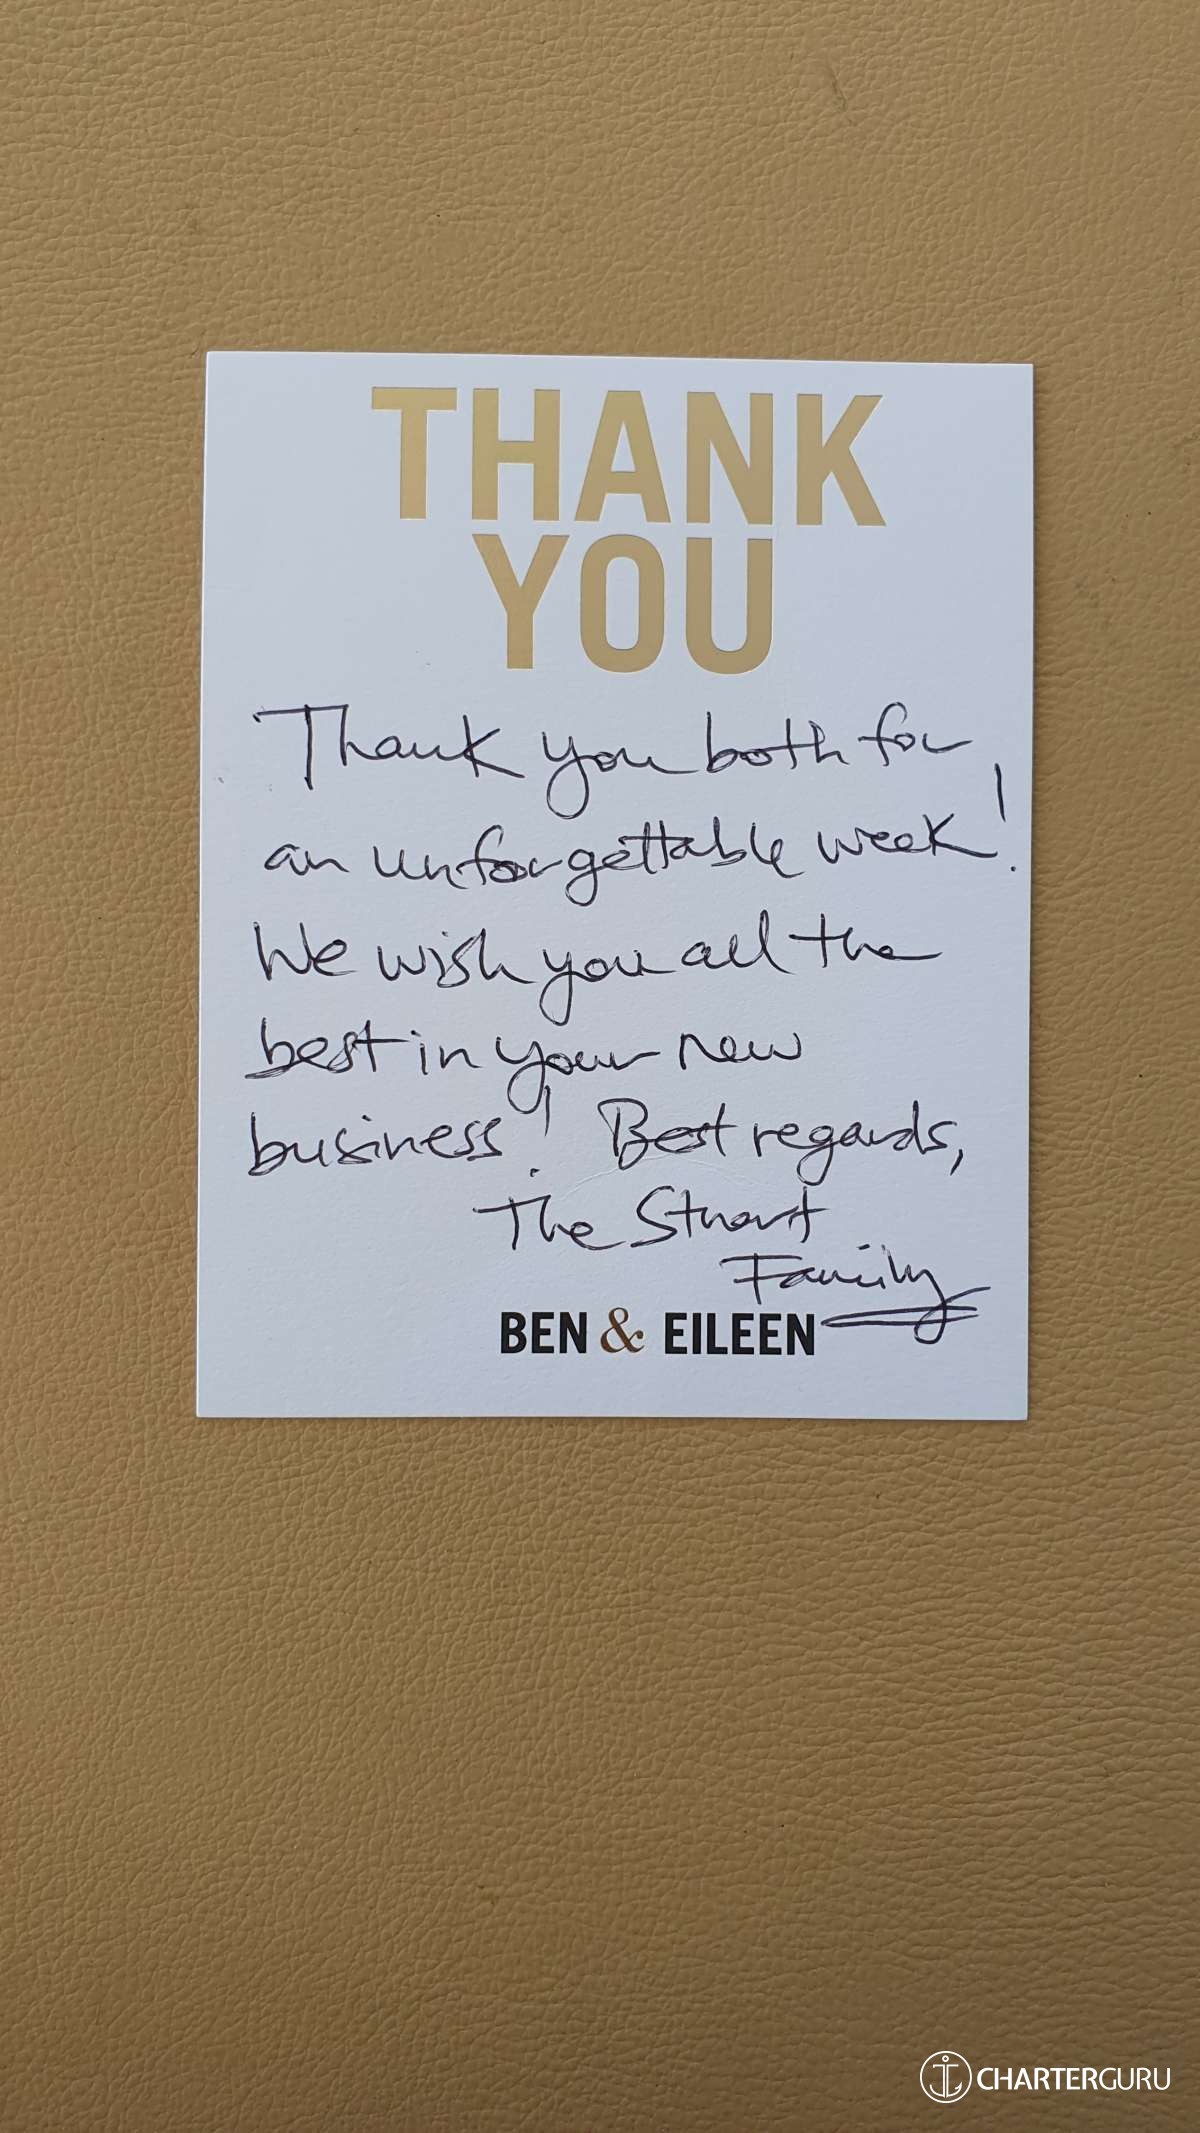 THANK
YOU
Thank you both for
an unforgettable week!
We wish you all the
best in your new
business! Best regards,
The Stuart
Family
BEN & EILEEN
CHARTERGURU